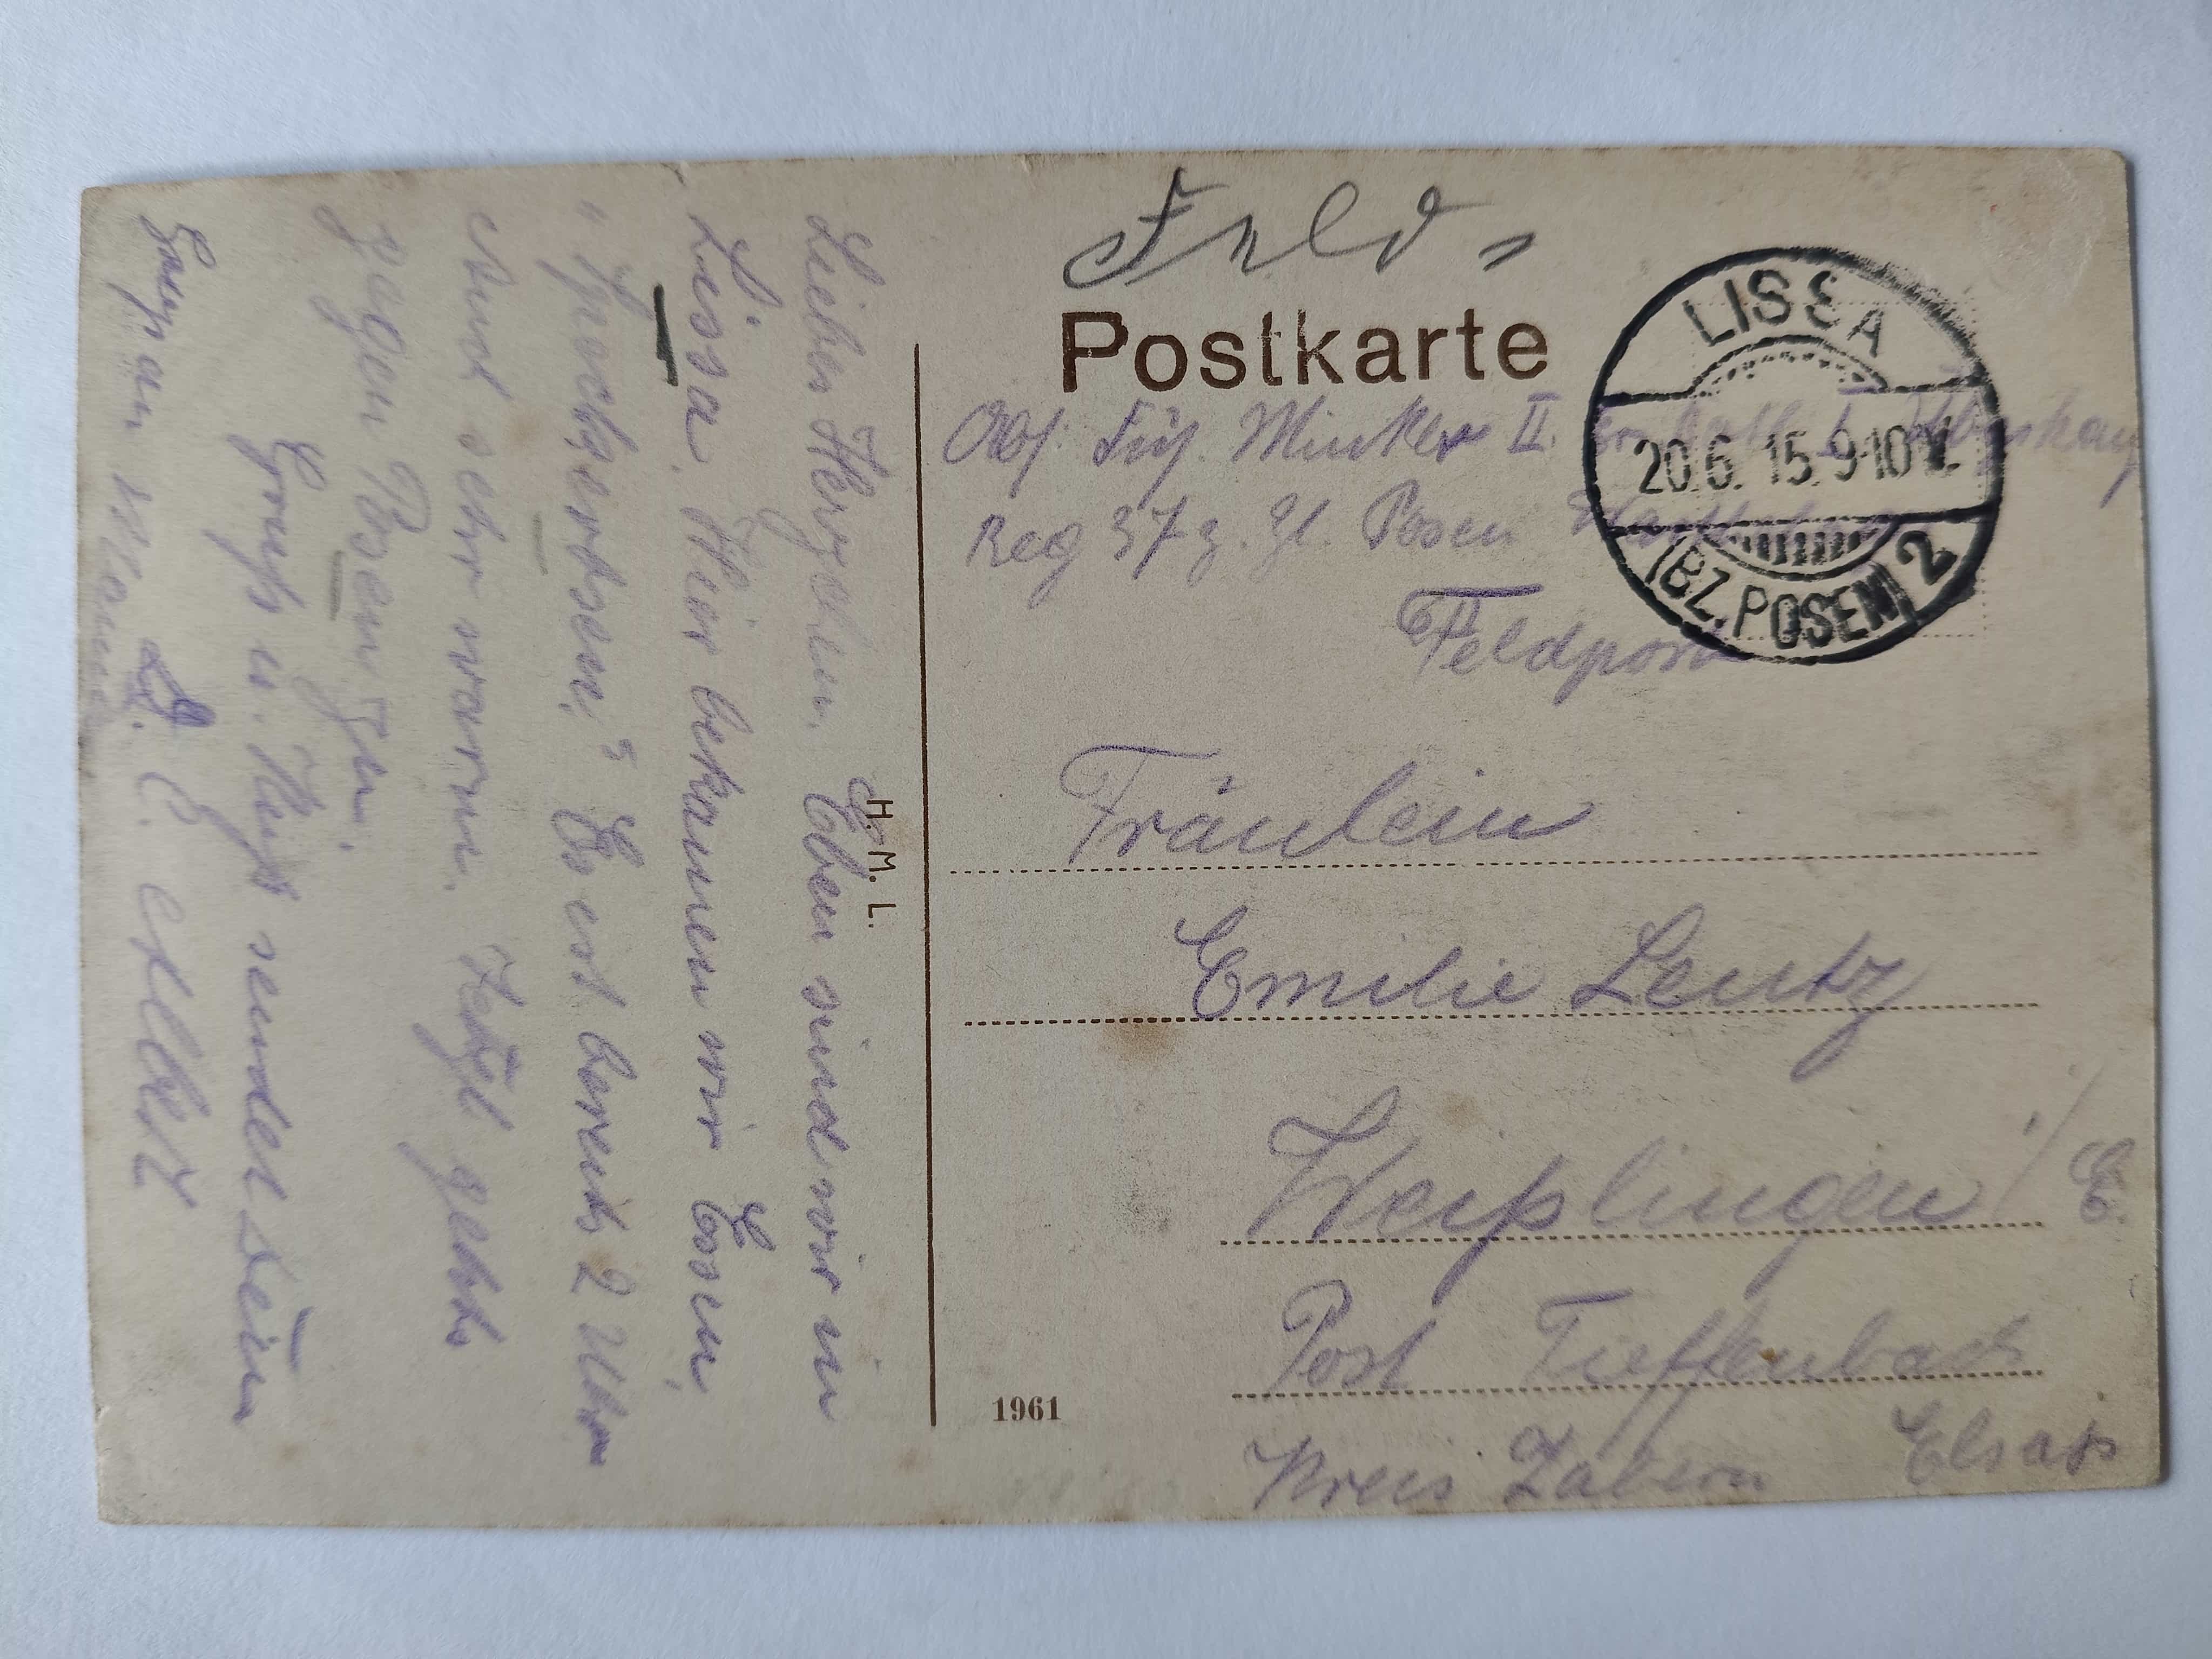 Feld-
Postkarte
LISSA
20.6.15.9-10V.
(BZ. POSEN) 2
Abs. Füs. Minker II
Reg 37 z. Zt. Posen
Feldpost
Fräulein
Emilie Lentz
Weißlingen i/E.
Post Tieffenbach
Kreis Zabern Elsass
1961
H. M. L.
Liebes Herzchen. Eben sind wir in
Lissa. Hier bekamen wir Essen,
Es ist bereits 2 Uhr
und sehr warm. Jetzt gehts
gegen Posen zu.
Gruß u. Kuß sendet Dein
Lb. Albert
Gruß an